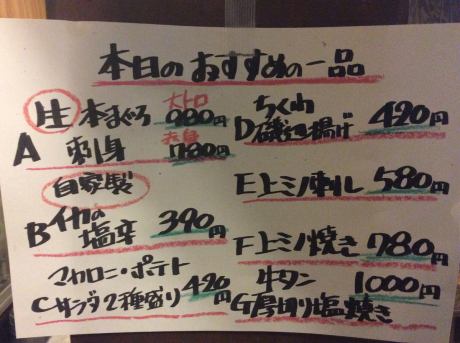 本日のおすすめの一品
生 本まぐろ 大トロ 980円
A 刺身 赤身 780円
自家製
B イカの塩辛 390円
マカロニ・ポテト
C サラダ2種盛り 420円
ちくわ
D 磯辺揚げ 420円
E 上ミノ刺し 580円
F 上ミノ焼き 780円
牛タン 1000円
G 厚切り塩焼き